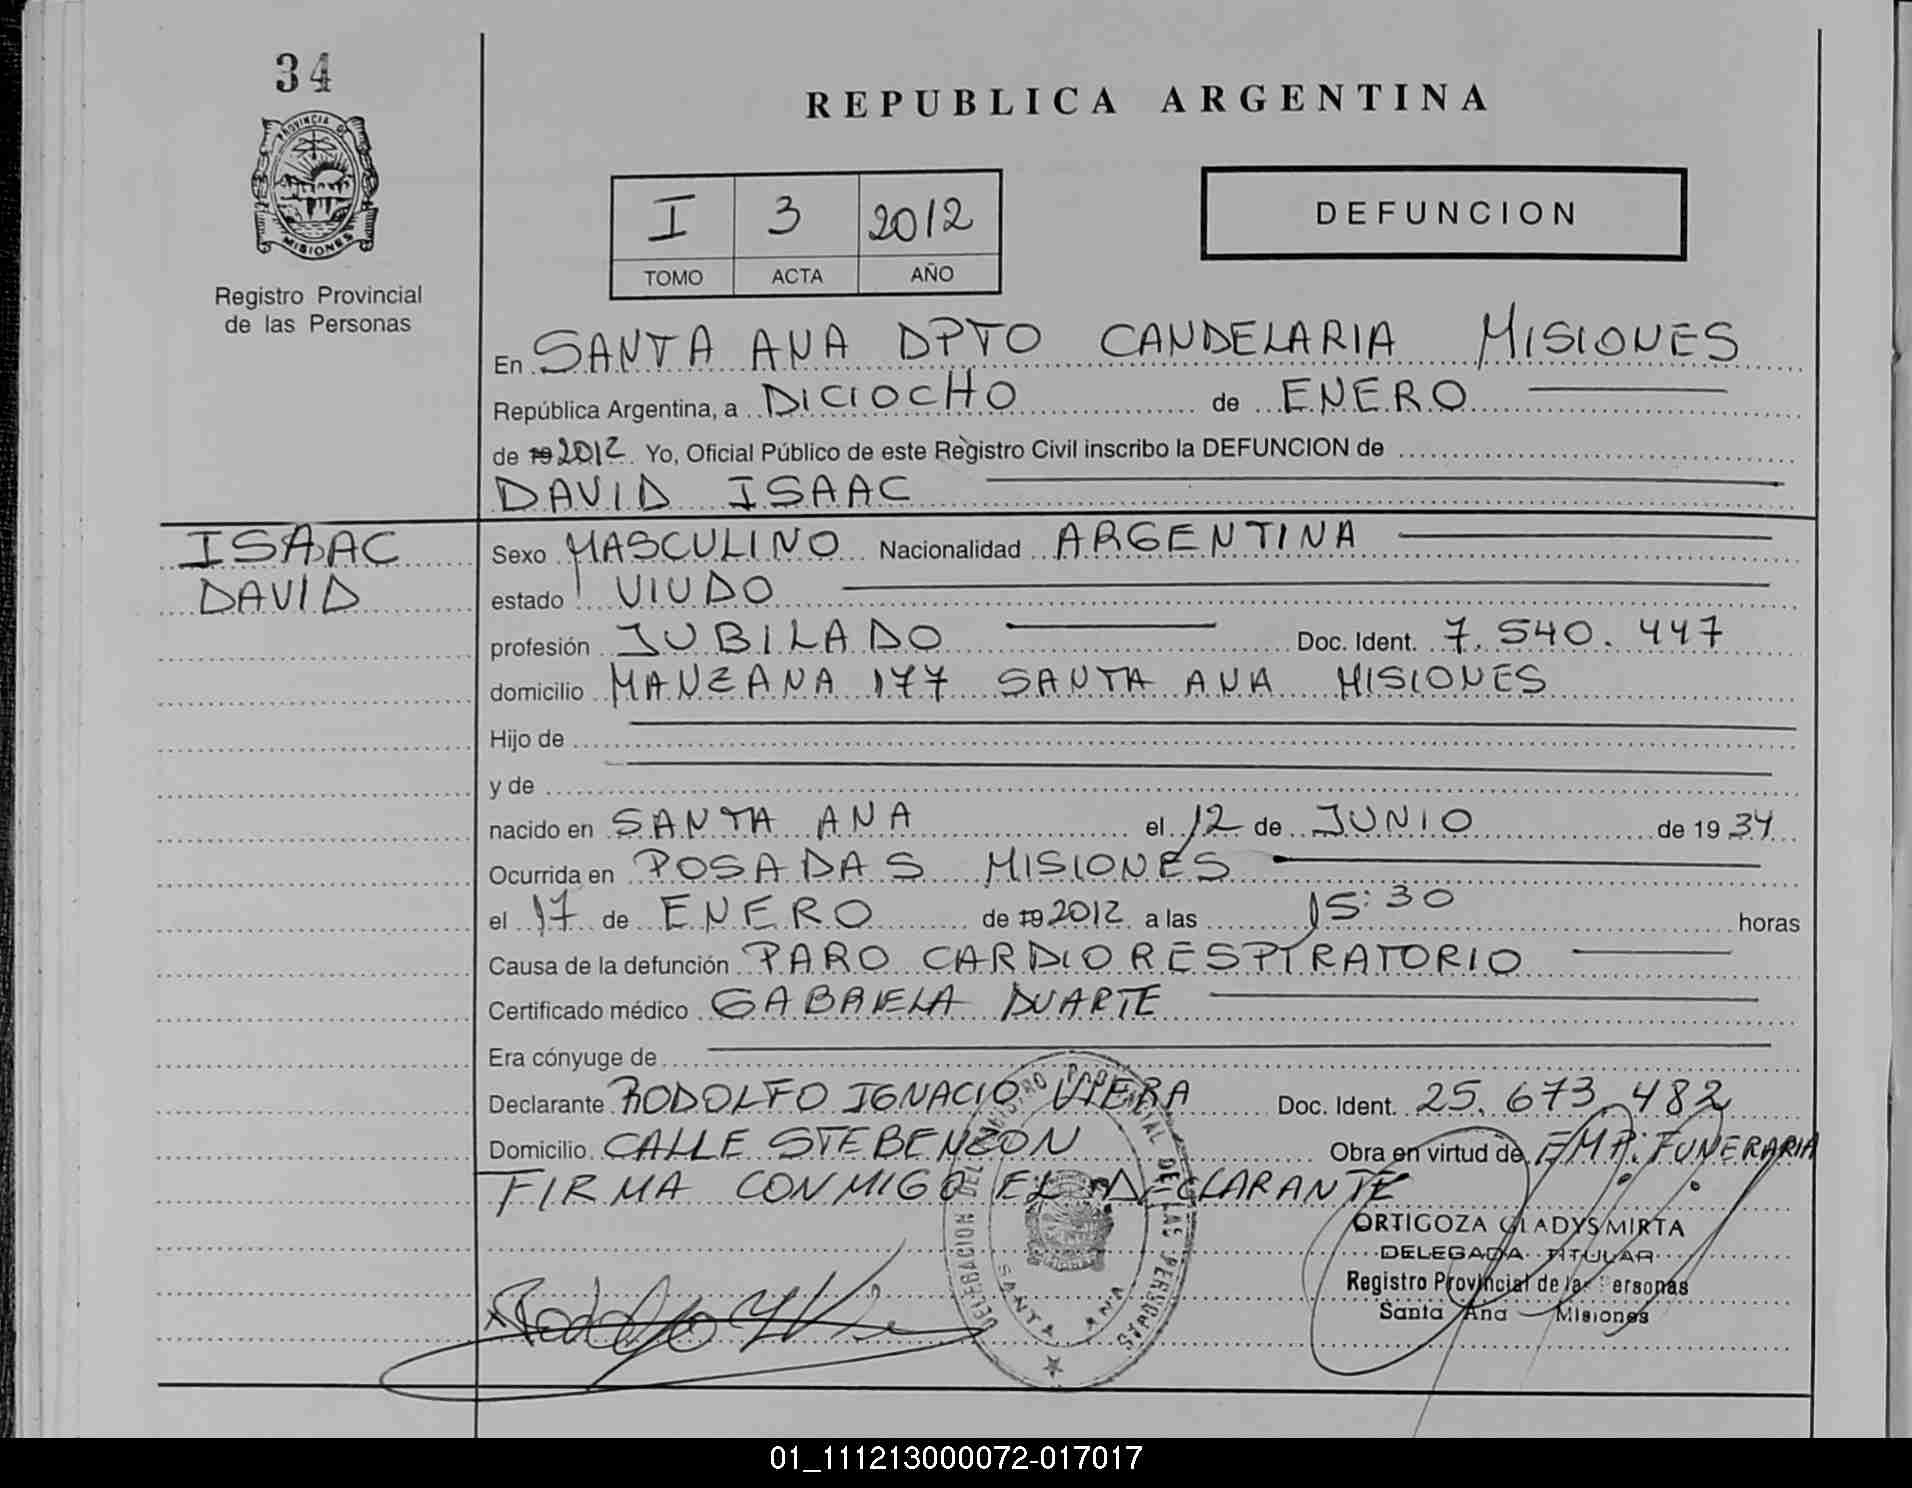 34
PROVINCIA DE
MISIONES
Registro Provincial
de las Personas
REPUBLICA ARGENTINA
I 3 2012
TOMO ACTA AÑO
DEFUNCION
En SANTA ANA DPTO CANDELARIA MISIONES
República Argentina, a DICIOCHO de ENERO
de 19 2012 Yo, Oficial Público de este Registro Civil inscribo la DEFUNCION de
DAVID ISAAC
ISAAC
DAVID
Sexo MASCULINO Nacionalidad ARGENTINA
estado VIUDO
profesión JUBILADO Doc. Ident. 7.540.447
domicilio MANZANA 177 SANTA ANA MISIONES
Hijo de
y de
nacido en SANTA ANA el 12 de JUNIO de 19 34
Ocurrida en POSADAS MISIONES
el 17 de ENERO de 19 2012 a las 15:30 horas
Causa de la defunción PARO CARDIORESPIRATORIO
Certificado médico GABRIELA DUARTE
Era cónyuge de
Declarante RODOLFO IGNACIO VIERA Doc. Ident. 25.673.482
Domicilio CALLE STEBENZON Obra en virtud de EMP. FUNERARIA
FIRMA CONMIGO EL DECLARANTE
DELEGACION DEL REGISTRO PROVINCIAL DE LAS PERSONAS
SANTA ANA
ORTIGOZA GLADYS MIRTA
DELEGADA TITULAR
Registro Provincial de las Personas
Santa Ana - Misiones
01_111213000072-017017